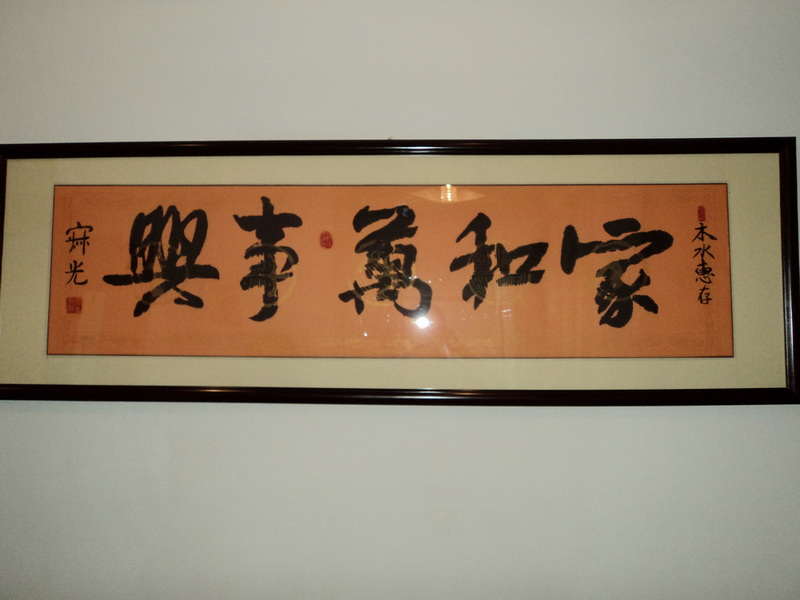 木水惠存
家和萬事興
寂光